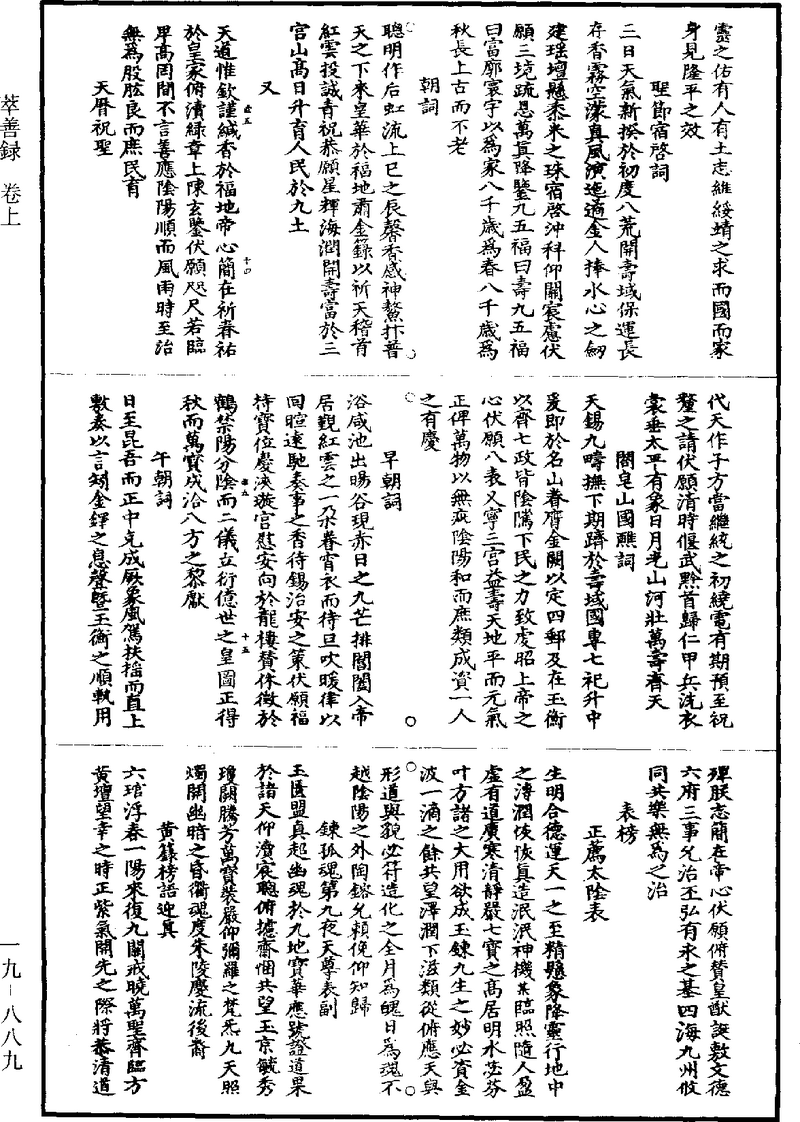 靈之佑有人有土志維綏靖之求而國而家
身見隆平之效
聖節宿啓詞
三日天氣新揆於初度八荒開壽域保運長
存香霧空濛真風演迤過金人捧水心之劒
建瑶壇懸黍米之珠宿啓沖科仰關宸慮伏
願三境疏恩萬真降鑒九五福曰壽九五福
曰富廓寰宇以為家八千歲為春八千歲為
秋長上古而不老
朝詞
聰明作后虹流上巳之辰馨香感神鰲抃普
天之下來皇華於福地肅金籙以祈天稽首
紅雲投誠青祝恭願星輝海潤開壽富於三
宫山高日升育人民於九土
又
天道惟欽謹緘香於福地帝心簡在祈春祐
於皇家俯瀆綠章上陳玄鑒伏願咫尺若臨
卑高罔間不言善應陰陽順而風雨時至治
無為股肱良而庶民育
天曆祝聖
代天作子方當繼統之初繞電有期預至祝
釐之請伏願清時偃武黔首歸仁甲兵洗衣
裳垂太平有象日月光山河壯萬壽齊天
閤皂山國醮詞
天錫九疇撫下期躋於壽域國專七祀升中
爰即於名山眷膺金闕以定四郵及在玉衡
以齊七政皆陰隲下民之力致虔昭上帝之
心伏願八表乂寧三宫益壽天地平而元氣
正俾萬物以無疵陰陽和而庶類成資一人
之有慶
早朝詞
浴咸池出暘谷現赤日之九芒排閶闔入帝
居觀紅雲之一朶眷宵衣而待旦吹暖律以
回暄遠馳奏事之香待錫治安之策伏願福
持寶位慶浹璇官慰安向於龍樓贊休徵於
鶴禁陽分陰而二儀立衍億世之皇圖正得
秋而萬寶成洽八方之黎獻
午朝詞
日至昆吾而正中克成厥象風駕扶摇而直上
敷奏以言矧金鐸之息聲暨玉衡之順軌用
殫朕志簡在帝心伏願俯贊皇猷誕敷文德
六府三事允治丕弘有永之基四海九州攸
同共樂無為之治
表榜
正薦太陰表
生明合德運天一之至精懸象降靈行地中
之溥潤恢恢真造泯泯神機其臨照隨人盈
虚有道廣寒清静嚴七寶之高居明水苾芬
叶方諸之大用欲成玉鍊九生之妙必資金
波一滴之餘共望澤潤下滋類從俯應天與
形道與貌必符造化之全月為魄日為魂不
越陰陽之外陶鎔允賴俛仰知歸
鍊孤魂第九夜天尊表副
玉匱盟真起幽魂於九地寶華應號證道果
於諸天仰瀆宸聰俯攄齋悃共望玉京毓秀
瓊闕騰芳萬寶裝嚴仰彌羅之梵炁九天照
燭開幽暗之昏衢魂度朱陵慶流後裔
黄籙榜語迎真
六琯浮春一陽來復九關戒曉萬聖齊臨方
黄壇望幸之時正紫氣開先之際將恭清道
萃善録 卷上
一九－八八九